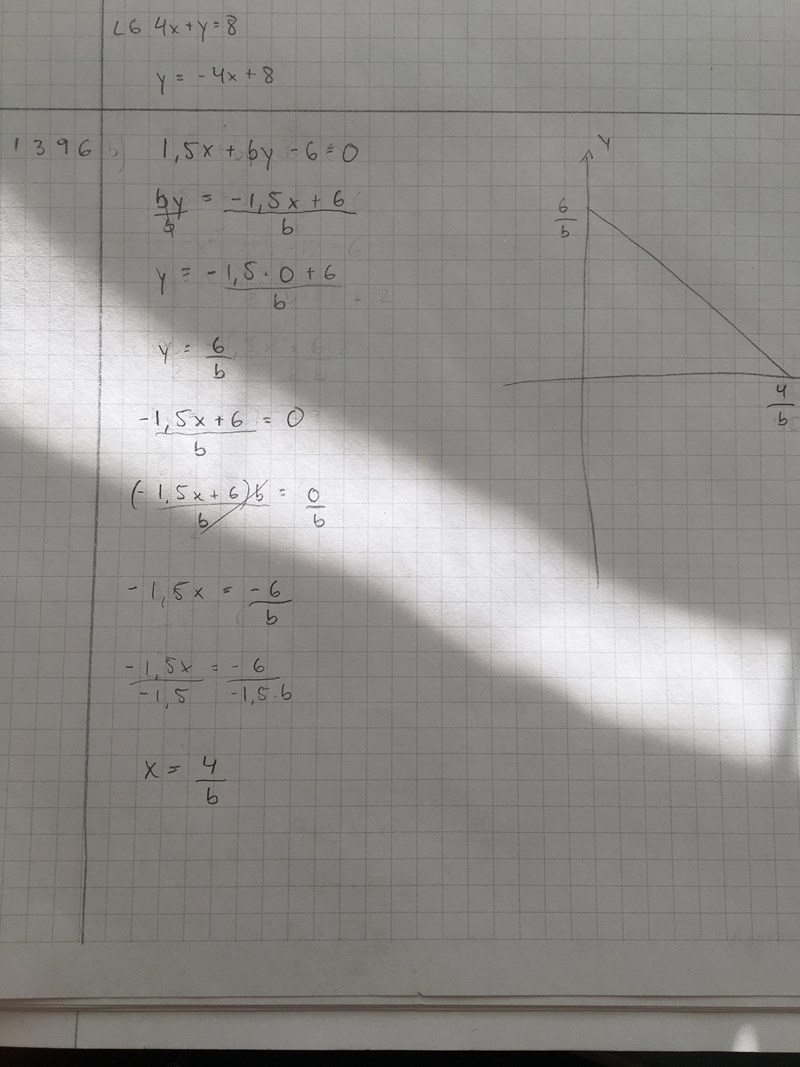 L6 4x+y=8
y = -4x+8
1396 1,5x + by - 6 = 0
by/b = (-1,5x + 6)/b
y = -(1,5 · 0 + 6)/b
y = 6/b
(-1,5x + 6)/b = 0
(-1,5x + 6)b/b = 0/b
-1,5x = -6/b
-1,5x/-1,5 = -6/(-1,5 · b)
x = 4/b
y
6/b
4/b